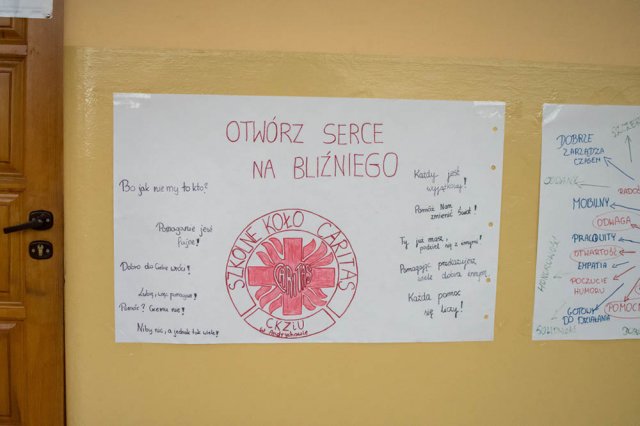 OTWÓRZ SERCE
NA BLIŹNIEGO
Bo jak nie my to kto?
Pomaganie jest
fajne!
Dobro do Ciebie wróci!
Lubię, więc pomagam!
Pomóc? Czemu nie!
Niby nic, a jednak tak wiele!
SZKOLNE KOŁO CARITAS
CKZiU
w Andrychowie
Każdy jest
wyjątkowy!
Pomóż Nam
zmienić świat!
Ty już masz,
podziel się z innymi!
Pomagając przekazujesz
wiele dobra innym
Każda pomoc
się liczy!
DOBRZE
ZARZĄDZA
CZASEM
MOBILNY
ODWAGA
PRACOWITY
OTWARTOŚĆ
EMPATIA
POCZUCIE
HUMORU
GOTOWY
DO DZIAŁANIA